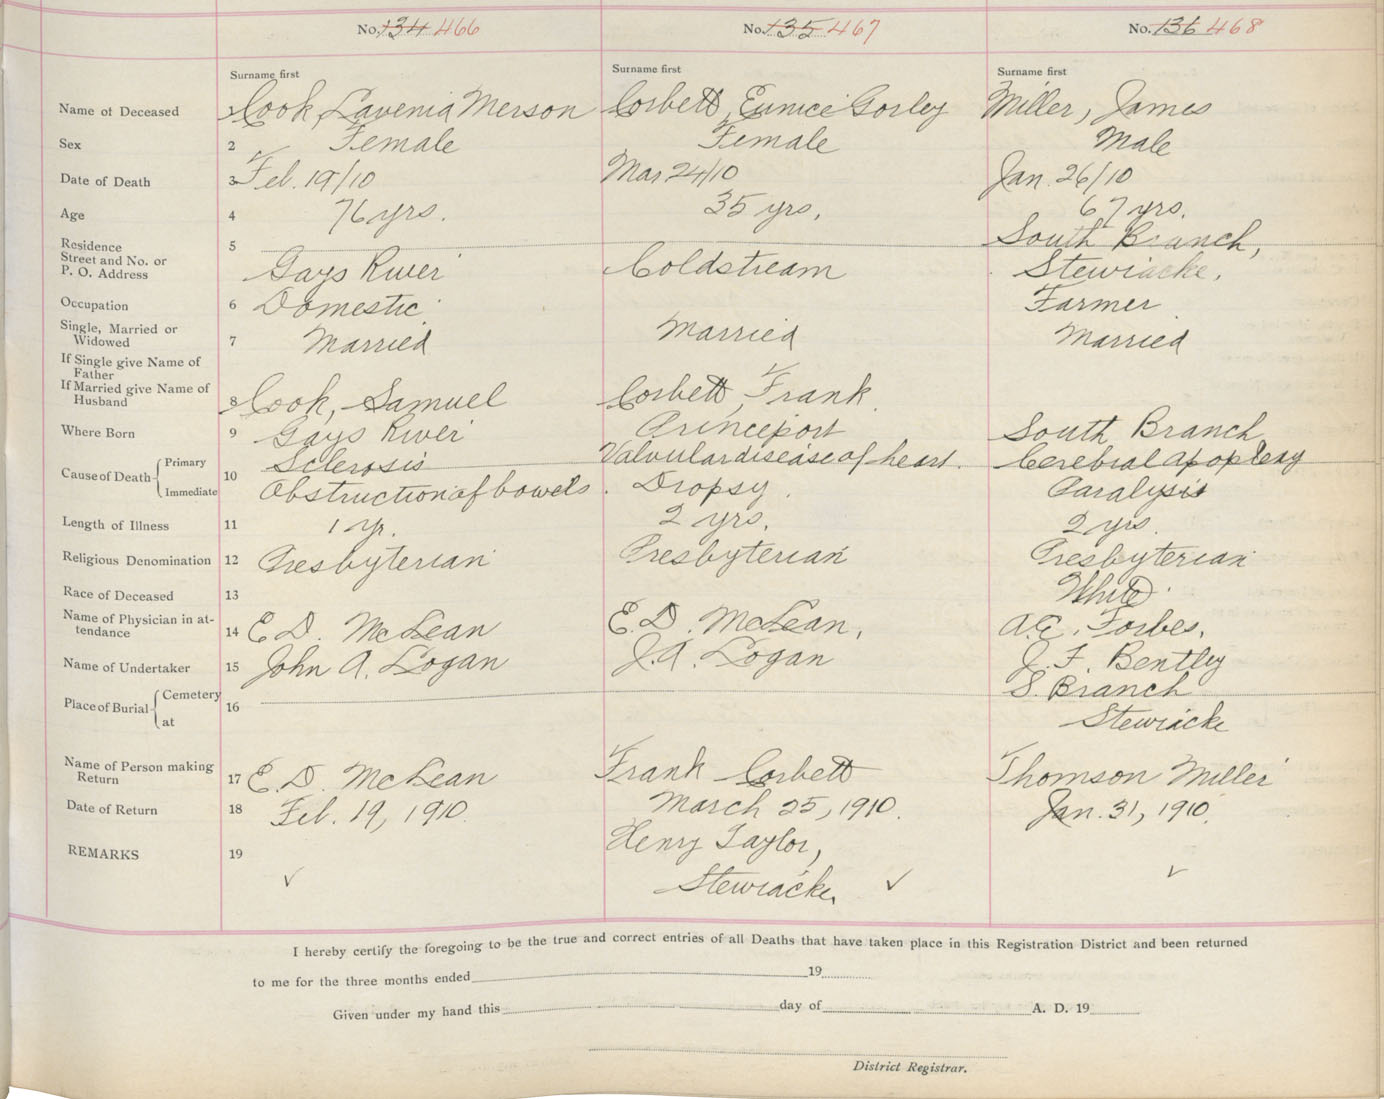 No. 134 466 No. 135 467 No. 136 468
Surname first Surname first Surname first
Name of Deceased 1 Cook, Lavenia Merson Corbett, Eunice Gorley Miller, James
Sex 2 Female Female Male
Date of Death 3 Feb. 19/10 Mar 24/10 Jan. 26/10
Age 4 76 yrs. 35 yrs. 67 yrs.
Residence 5 South Branch,
Street and No. or
P. O. Address Gays River Coldstream Stewiacke.
Occupation 6 Domestic Farmer
Single, Married or
Widowed 7 Married Married Married
If Single give Name of
Father
If Married give Name of
Husband 8 Cook, Samuel Corbett, Frank
Where Born 9 Gays River Princeport South Branch
Cause of Death Primary 10 Sclerosis Valvular disease of heart. Cerebral apoplexy
Immediate Obstruction of bowels. Dropsy. Paralysis
Length of Illness 11 1 yr. 2 yrs. 2 yrs.
Religious Denomination 12 Presbyterian Presbyterian Presbyterian
Race of Deceased 13 White
Name of Physician in at-
tendance 14 E. D. McLean E. D. McLean, A. E. Forbes,
Name of Undertaker 15 John A. Logan J. A. Logan J. F. Bentley
Place of Burial Cemetery 16 S. Branch
at Stewiacke
Name of Person making
Return 17 E. D. McLean Frank Corbett Thomson Miller
Date of Return 18 Feb. 19, 1910. March 25, 1910. Jan. 31, 1910.
REMARKS 19 Henry Taylor,
✓ Stewiacke, ✓ ✓
I hereby certify the foregoing to be the true and correct entries of all Deaths that have taken place in this Registration District and been returned
to me for the three months ended 19
Given under my hand this day of A. D. 19
District Registrar.